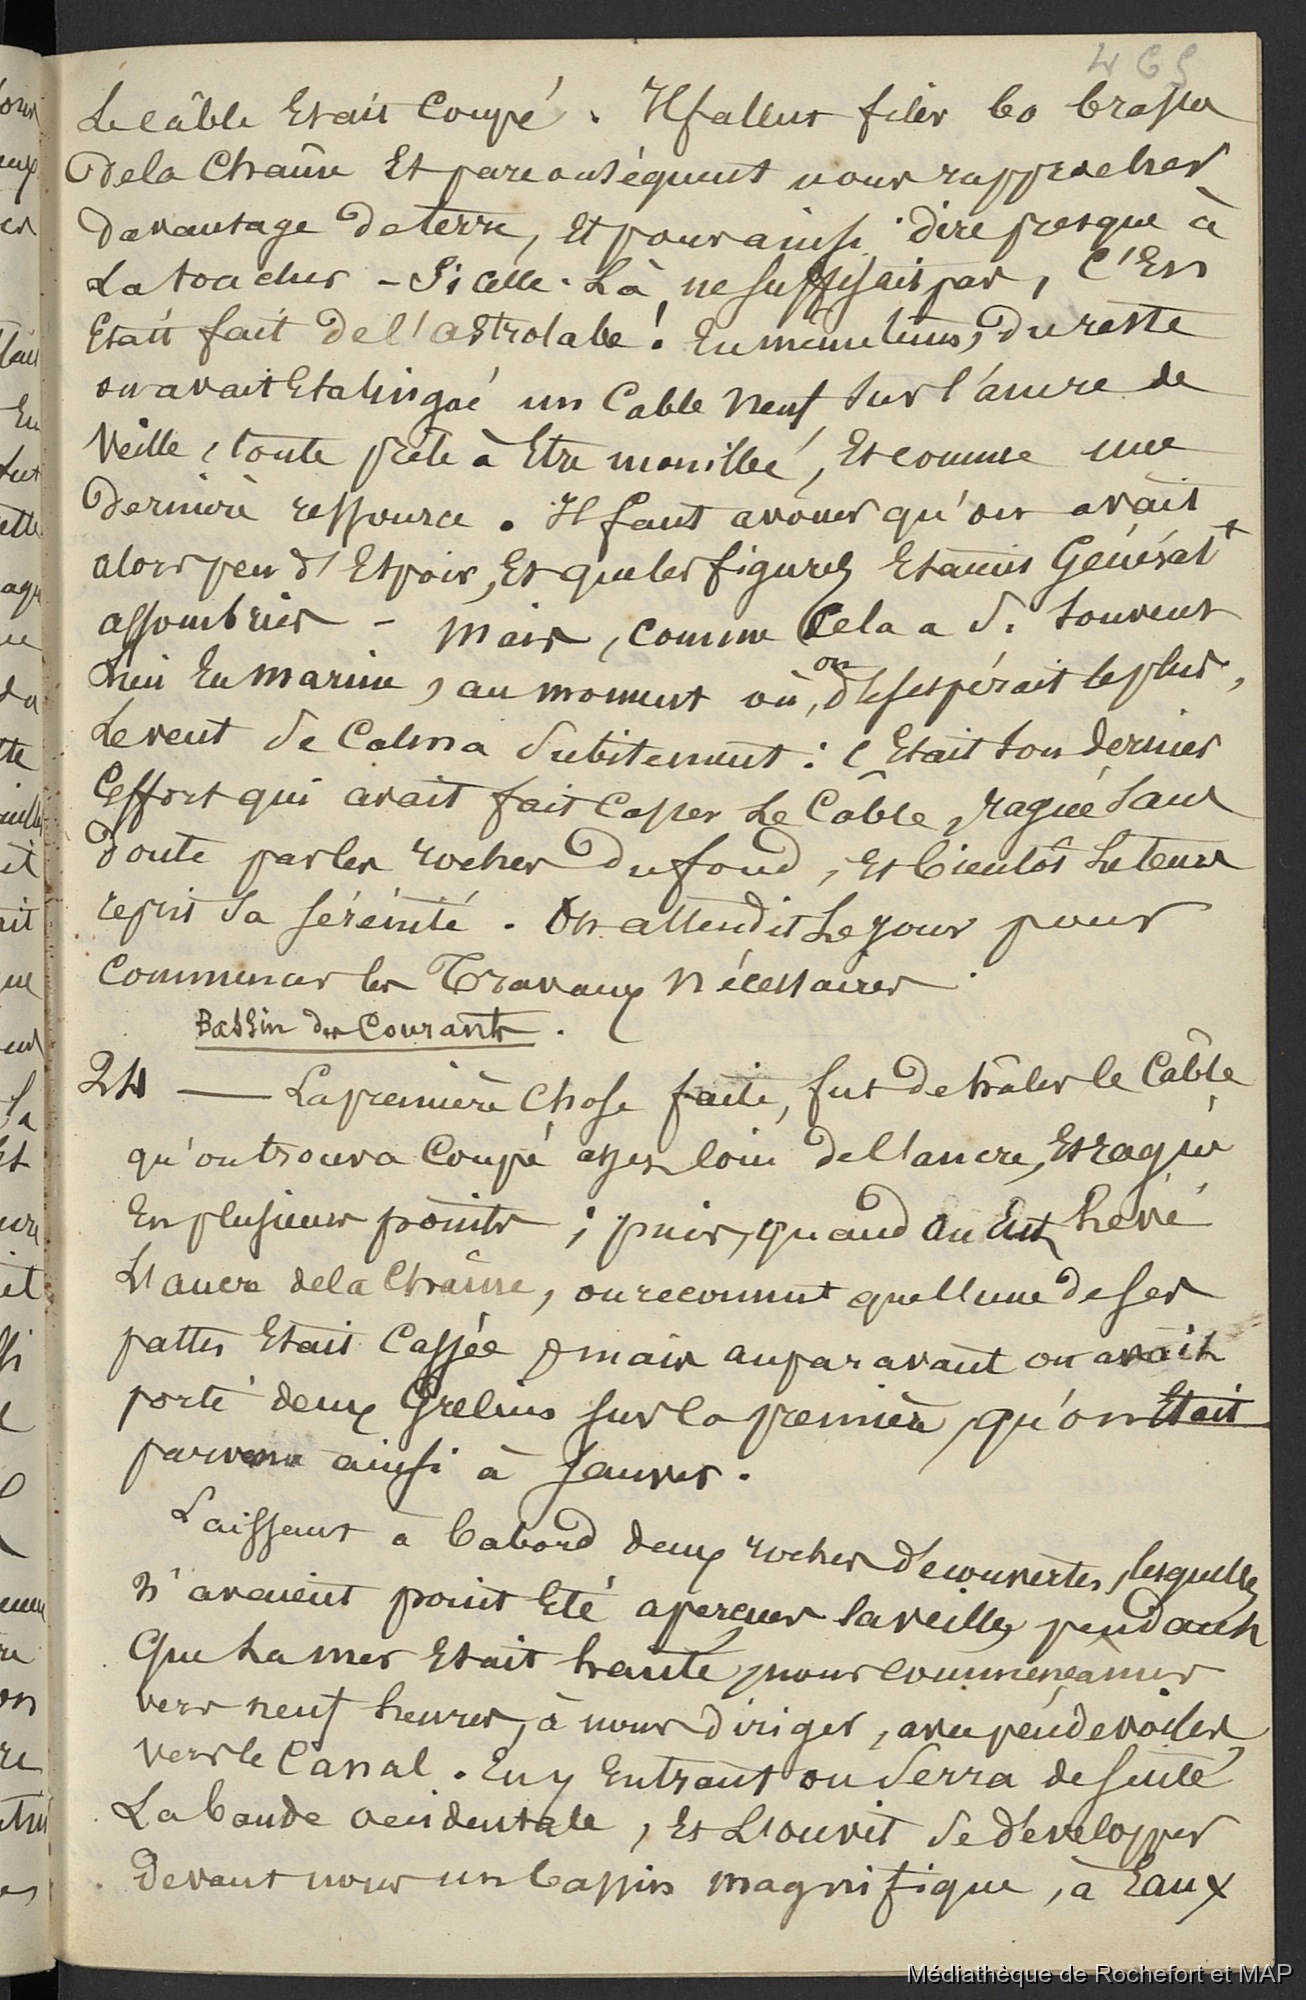 465
Le câble Etait Coupé. Il fallut filer 60 brasses
De la Chaîne Et par conséquent nous rapprocher
Davantage De terre, Et pour ainsi dire presque à
La toucher - Si celle-Là, ne suffisait pas, C'En
Etait fait De l'astrolabe! En même tems, Du reste
on avait Etalingué un Cable Neuf Sur l'ancre de
Veille, toute prête à Etre mouillée, Et comme une
Dernière ressource. Il faut avouer qu'on avait
alors peu d'Espoir, Et que les figures Etaient Généralt
assombries - Mais, comme Cela a Si Souvent
Lieu En marine, au moment où, on désespérait le plus,
Le vent Se Calma Subitement: C'Etait Son Dernier
Effort qui avait fait Casser Le Câble, ragué Sans
Doute par les rocher Du fond, Et bientôt Le tems
reprit Sa Sérénité. On attendit Le jour pour
Commencer les Travaux Nécessaires.
Bassin des Courants.
24 — La première Chose faite, fut De hâler le Câble
qu'on trouva Coupé assez loin De l'ancre, Et ragué
En plusieurs points; puis, quand on Eut Levé
L'ancre de la Chaîne, on reconnut que l'une De Ses
pattes Etait Cassée mais auparavant on avait
porté deux Grelins Sur la première, qu'on Etait
parvenu ainsi à Sauver.
Laissant à babord deux rocher découvertes, lesquelles
N'avaient point Eté apercues la veille, pendant
Que La mer Etait haute, nous commençames
vers neuf heures, à nous Diriger, avec peu de voiles,
Vers le Canal. En y Entrant on Serra de Suite
La bande occidentale, Et L'on vit Se Développer
Devant nous un bassin magnifique, à Eaux
Médiathèque de Rochefort et MAP